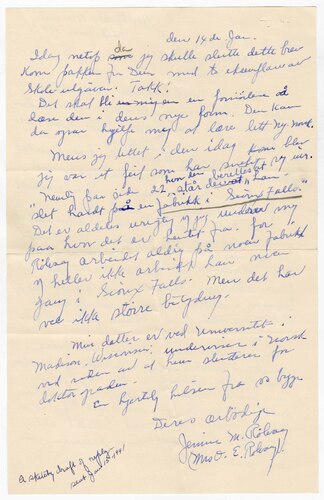 den 14 de Jan.
Idag netop da jeg skulde slutte dette brev
kom pakken fra Dem med to eksemplarer av
Skole utgaven. Takk!
Det skal bli en fornöielse å
læse den i dens nye form. Den kan
da også hjelpe meg at lære litt ny norsk.
Mens jeg tittet i den idag kom
jeg over et feil som har
"Nemlig paa side 22, står der at
han
på en fabrikk i Sioux Falls."
Det er aldeles urigtig og jeg undrer mig
paa hvem det er hentet fra. for
Rölvaag arbeidet aldrig på noen fabrikk
og heller ikke arbeidet han noen
gang i Sioux Falls. Men det har
vel ikke större betydning.
Min datter er ved Universitetet i
Madison, Wisconsin, underviser i norsk
ved siden av at hun studerer for
doktorgraden.
En hjertelig hilsen fra os begge
Deres ærbödige
Jennie M. Rölvaag
Mrs O. E. Rölvaag.
A sketchy draft of reply
sent Jan 15th 1941